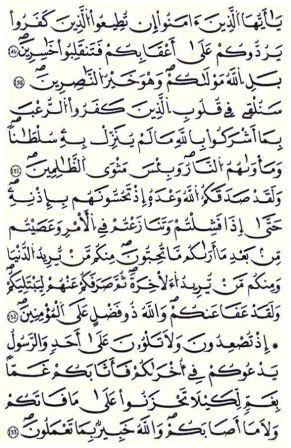 يَٰٓأَيُّهَا ٱلَّذِينَ ءَامَنُوٓا۟ إِن تُطِيعُوا۟ ٱلَّذِينَ كَفَرُوا۟
يَرُدُّوكُمْ عَلَىٰٓ أَعْقَٰبِكُمْ فَتَنقَلِبُوا۟ خَٰسِرِينَ ١٤٩
بَلِ ٱللَّهُ مَوْلَىٰكُمْ وَهُوَ خَيْرُ ٱلنَّٰصِرِينَ ١٥٠
سَنُلْقِى فِى قُلُوبِ ٱلَّذِينَ كَفَرُوا۟ ٱلرُّعْبَ
بِمَآ أَشْرَكُوا۟ بِٱللَّهِ مَا لَمْ يُنَزِّلْ بِهِۦ سُلْطَٰنًا
وَمَأْوَىٰهُمُ ٱلنَّارُ وَبِئْسَ مَثْوَى ٱلظَّٰلِمِينَ ١٥١
وَلَقَدْ صَدَقَكُمُ ٱللَّهُ وَعْدَهُۥٓ إِذْ تَحُسُّونَهُم بِإِذْنِهِۦ
حَتَّىٰٓ إِذَا فَشِلْتُمْ وَتَنَٰزَعْتُمْ فِى ٱلْأَمْرِ وَعَصَيْتُم
مِّنۢ بَعْدِ مَآ أَرَىٰكُم مَّا تُحِبُّونَ مِنكُم مَّن يُرِيدُ ٱلدُّنْيَا
وَمِنكُم مَّن يُرِيدُ ٱلْءَاخِرَةَ ثُمَّ صَرَفَكُمْ عَنْهُمْ لِيَبْتَلِيَكُمْ
وَلَقَدْ عَفَا عَنكُمْ وَٱللَّهُ ذُو فَضْلٍ عَلَى ٱلْمُؤْمِنِينَ ١٥٢
* إِذْ تُصْعِدُونَ وَلَا تَلْوُۥنَ عَلَىٰٓ أَحَدٍ وَٱلرَّسُولُ
يَدْعُوكُمْ فِىٓ أُخْرَىٰكُمْ فَأَثَٰبَكُمْ غَمًّۢا
بِغَمٍّ لِّكَيْلَا تَحْزَنُوا۟ عَلَىٰ مَا فَاتَكُمْ
وَلَا مَآ أَصَٰبَكُمْ وَٱللَّهُ خَبِيرٌۢ بِمَا تَعْمَلُونَ ١٥٣